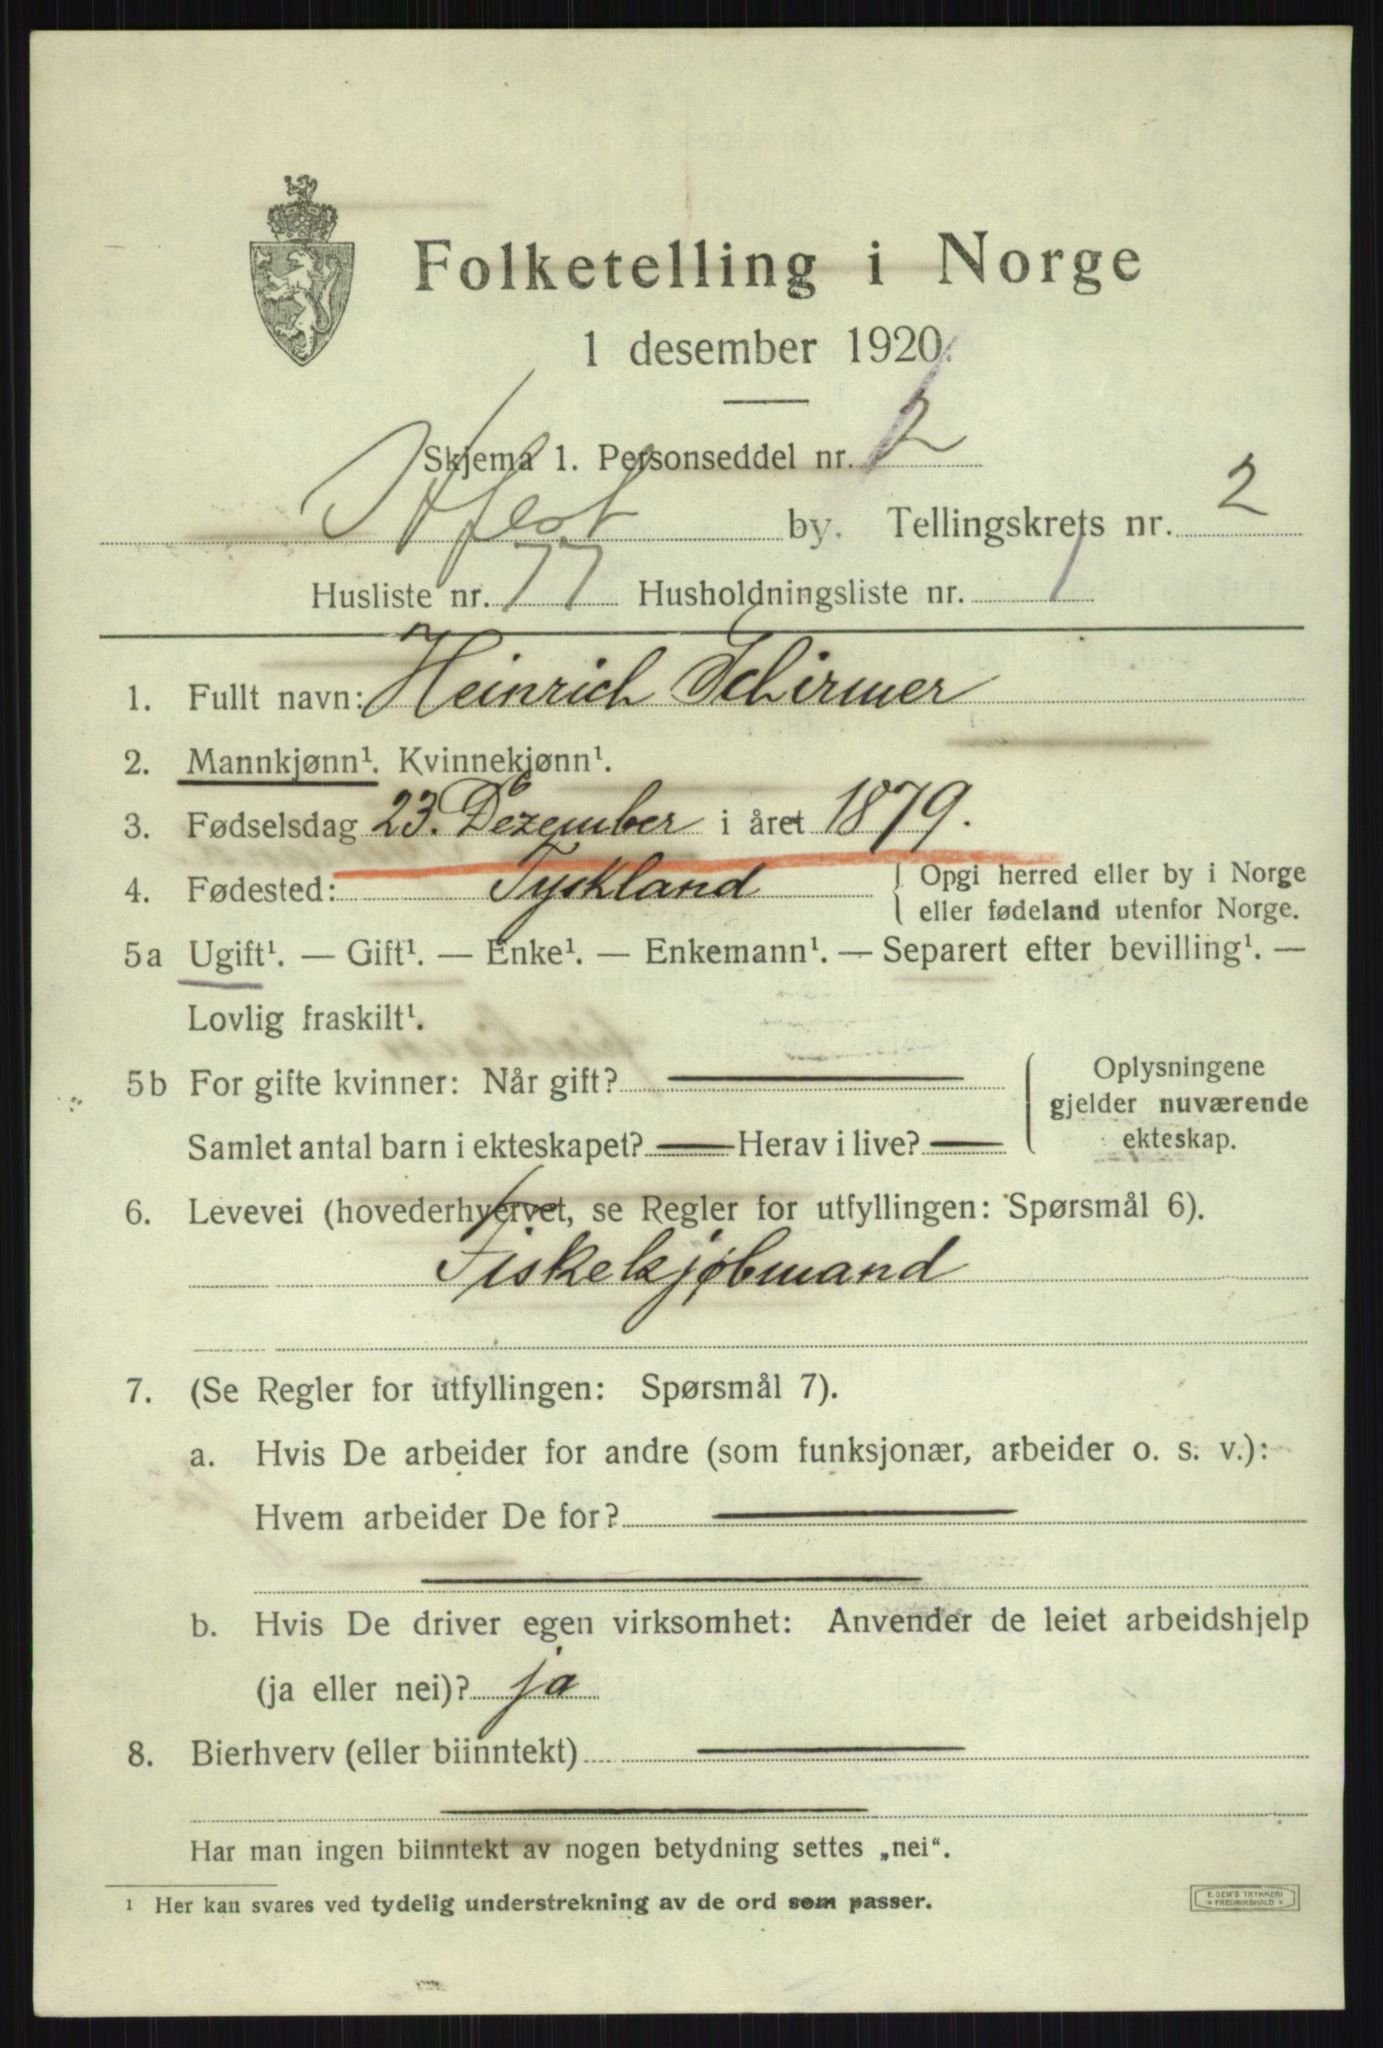 Folketelling i Norge
1 desember 1920.
Skjema 1. Personseddel nr. 2
by. Tellingskrets nr. 2
Husliste nr. 77 Husholdningsliste nr. 1
1. Fullt navn: Heinrich Schirmer
2. Mannkjønn¹. Kvinnekjønn¹.
3. Fødselsdag 23. Dezember i året 1879.
4. Fødested: Tyskland { Opgi herred eller by i Norge
eller fødeland utenfor Norge.
5a Ugift¹. — Gift¹. — Enke¹. — Enkemann¹. — Separert efter bevilling¹. —
Lovlig fraskilt¹.
5b For gifte kvinner: Når gift? — { Oplysningene
gjelder nuværende
ekteskap.
Samlet antal barn i ekteskapet? — Herav i live? —
6. Levevei (hovederhvervet, se Regler for utfyllingen: Spørsmål 6).
Fiskekjøbmand
7. (Se Regler for utfyllingen: Spørsmål 7).
a. Hvis De arbeider for andre (som funksjonær, arbeider o. s. v.):
Hvem arbeider De for? —
b. Hvis De driver egen virksomhet: Anvender de leiet arbeidshjelp
(ja eller nei)? ja
8. Bierhverv (eller biinntekt) —
Har man ingen biinntekt av nogen betydning settes „nei“.
¹ Her kan svares ved tydelig understrekning av de ord som passer.
E. SEM'S TRYKKERI
FREDRIKSHALD